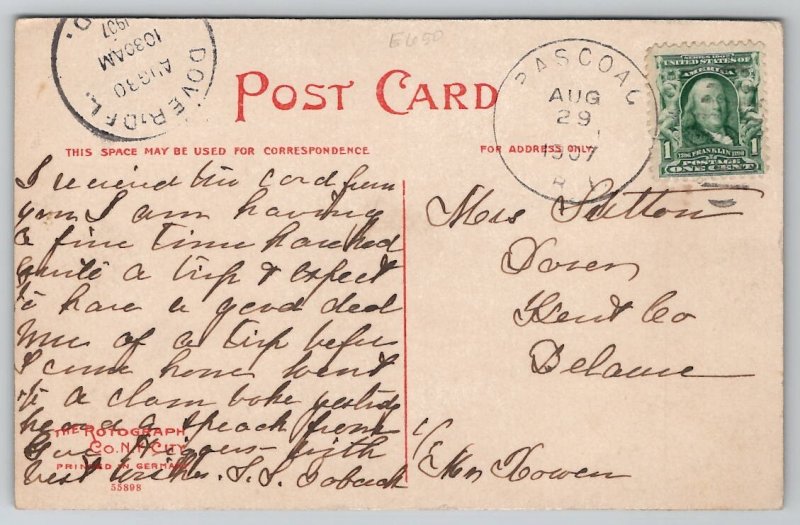 E650
DOVER, DEL.
AUG 30
1030AM
1907
D.
POST CARD
PASCOAG
AUG
29
1907
R.I.
SERIES 1902
UNITED STATES OF
AMERICA
1706 FRANKLIN 1790
1 POSTAGE 1
ONE CENT
THIS SPACE MAY BE USED FOR CORRESPONDENCE
FOR ADDRESS ONLY.
I received the card from
you I am having
a fine time have had
quite a trip & expect
to have a good deal
more of a trip before
I come home went
to a clam bake yesterday
heard a speach from
Gov Higgins with
best wishes. S. S.
Mrs Sutton
Dover
Kent Co
Delawe
c/o Mrs Cowen
THE ROTOGRAPH
CO. N.Y. CITY
PRINTED IN GERMANY
55898